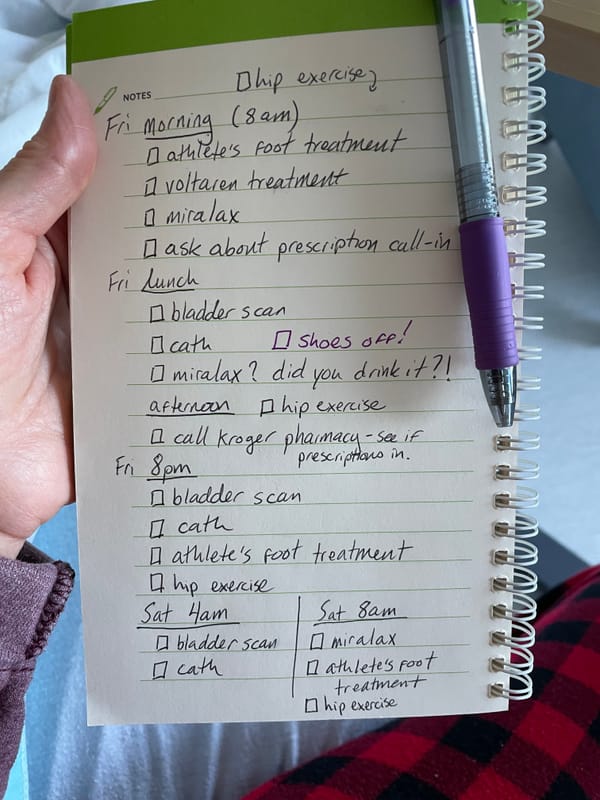 ☐ hip exercise
NOTES
Fri morning (8am)
☐ athlete's foot treatment
☐ voltaren treatment
☐ miralax
☐ ask about prescription call-in
Fri lunch
☐ bladder scan
☐ cath ☐ shoes off!
☐ miralax? did you drink it?!
afternoon ☐ hip exercise
☐ call kroger pharmacy - see if
prescriptions in.
Fri 8pm
☐ bladder scan
☐ cath
☐ athlete's foot treatment
☐ hip exercise
Sat 4am
☐ bladder scan
☐ cath
Sat 8am
☐ miralax
☐ athlete's foot
treatment
☐ hip exercise